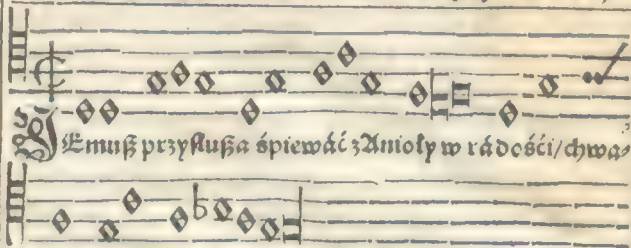 JEmuß przysłußa śpiewáć z Anioły w rádośći/ chwa⸗